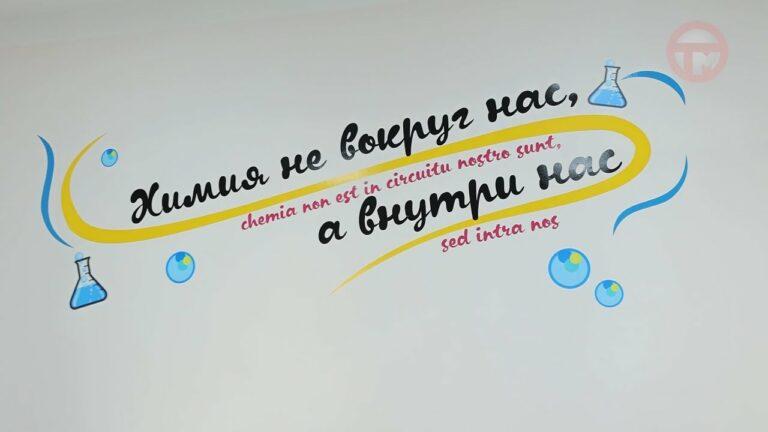 Химия не вокруг нас,
chemia non est in circuitu nostro sunt,
а внутри нас
sed intra nos
ТМ